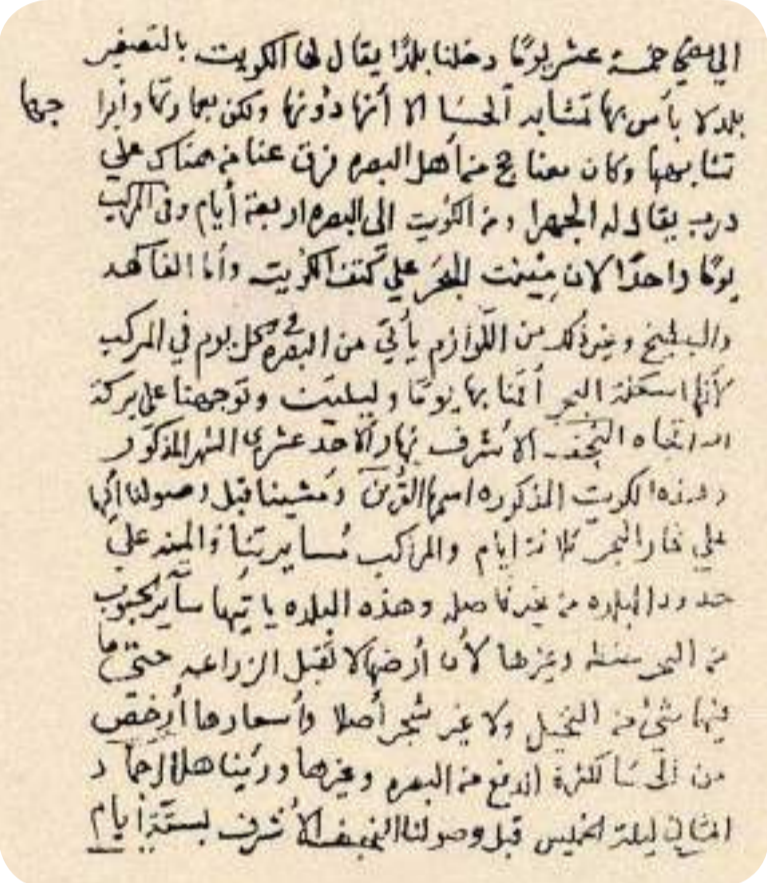 الي مضي خمسة عشر يومًا دخلنا بلدًا يقال لها الكويت بالتصغير
بلد لا بأس بها تشابه الحسا الا أنها دونها ولكن بعمارتها وأبرا جها
تشابهها وكان معنا حج من أهل البصره فرق عنا من هناك علي
درب يقال له الجهرا ومن الكويت الي البصره اربعة أيام وفي المركب
يومًا واحدًا لان مينت البحر علي كتف الكويت وأما الفاكهه
والبطيخ وغير ذلك من اللوازم يأتي من البصره في كل يوم في المركب
لأنها اسكلة البحر أقمنا بها يومًا وليلتين وتوجهنا علي بركة
الله اتجاه النجف الاشرف نهار الأحد عشري الشهر المذكور
وهذه الكويت المذكوره اسمها القرين ومشينا قبل وصولنا إليها
علي غار البحر ثلاثة ايام والمراكب مسايرتنا والمينه علي
حدود البلده من غير فاصله وهذه البلده يأتيها سآير الحبوب
من البحر حنطه وغيرها لأن أرضها لا تقبل الزراعه حتي ما
فيها شيء من النخيل ولا غير شجر أصلا وأسعارها أرخص
من الحسا لكثرة الدفع من البصره وغيرها ورئينا هلال جماد
الثاني ليلة الخميس قبل وصولنا النجف الأشرف بستة أيام